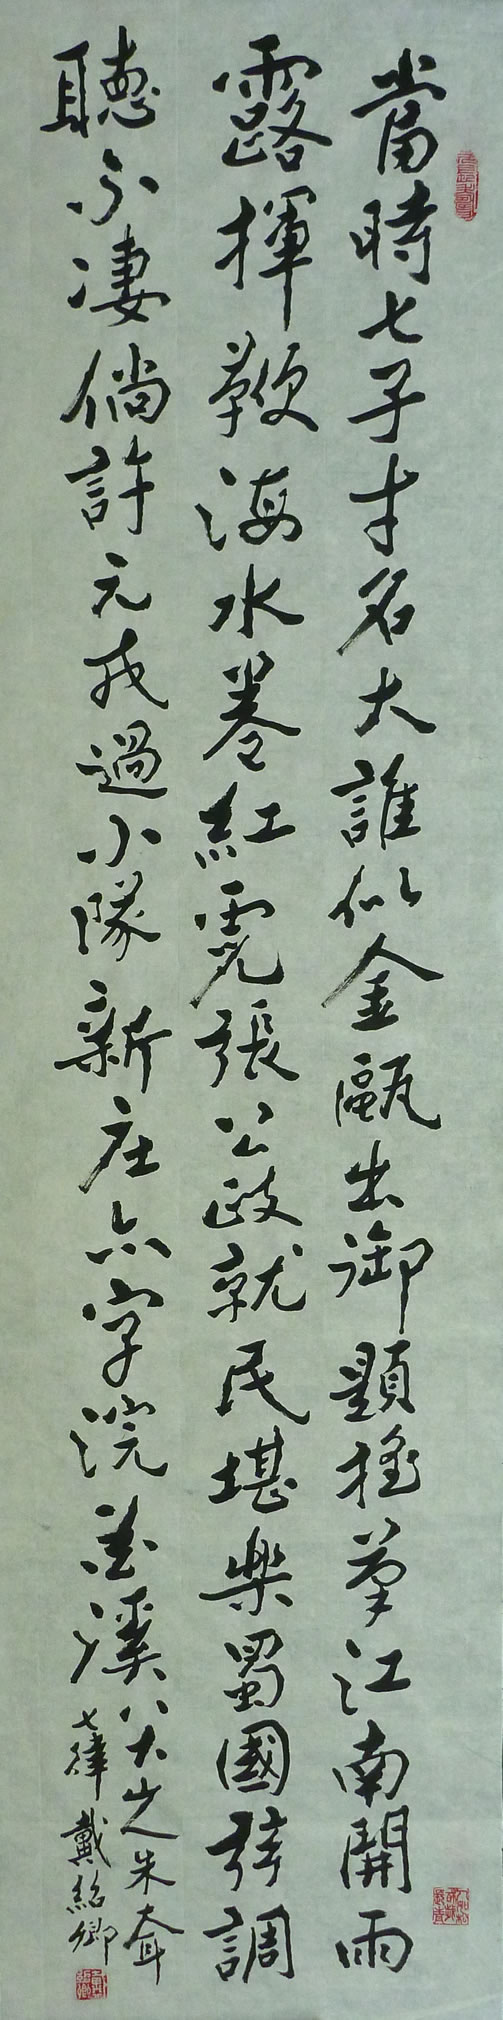 當時七子才名大誰似金甌出御題搖筆江南開雨
露揮鞭海水卷紅霓張公政就民堪樂蜀國絃調
聽不淒倘許元戎過小隊新庄只字浣花溪
八大山人朱耷
七律 戴紹卿